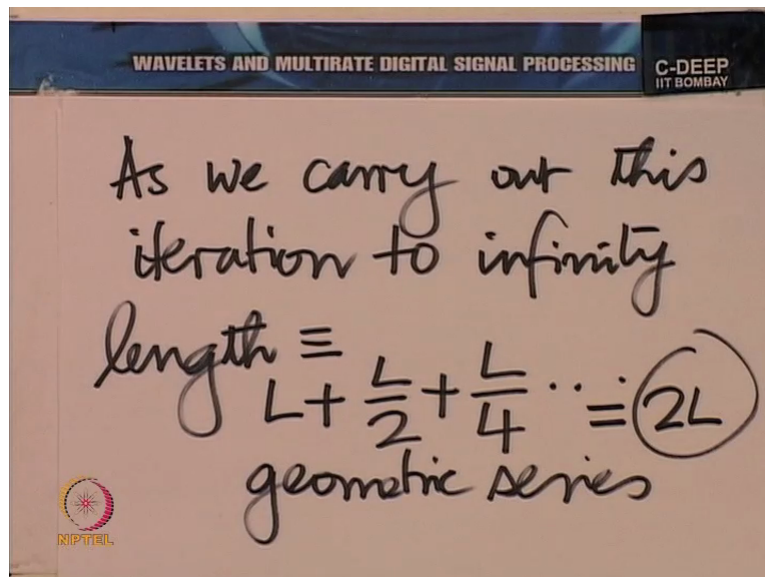 WAVELETS AND MULTIRATE DIGITAL SIGNAL PROCESSING
C-DEEP
IIT BOMBAY
As we carry out this
iteration to infinity
length ≡
L + L/2 + L/4 ... = 2L
geometric series
NPTEL